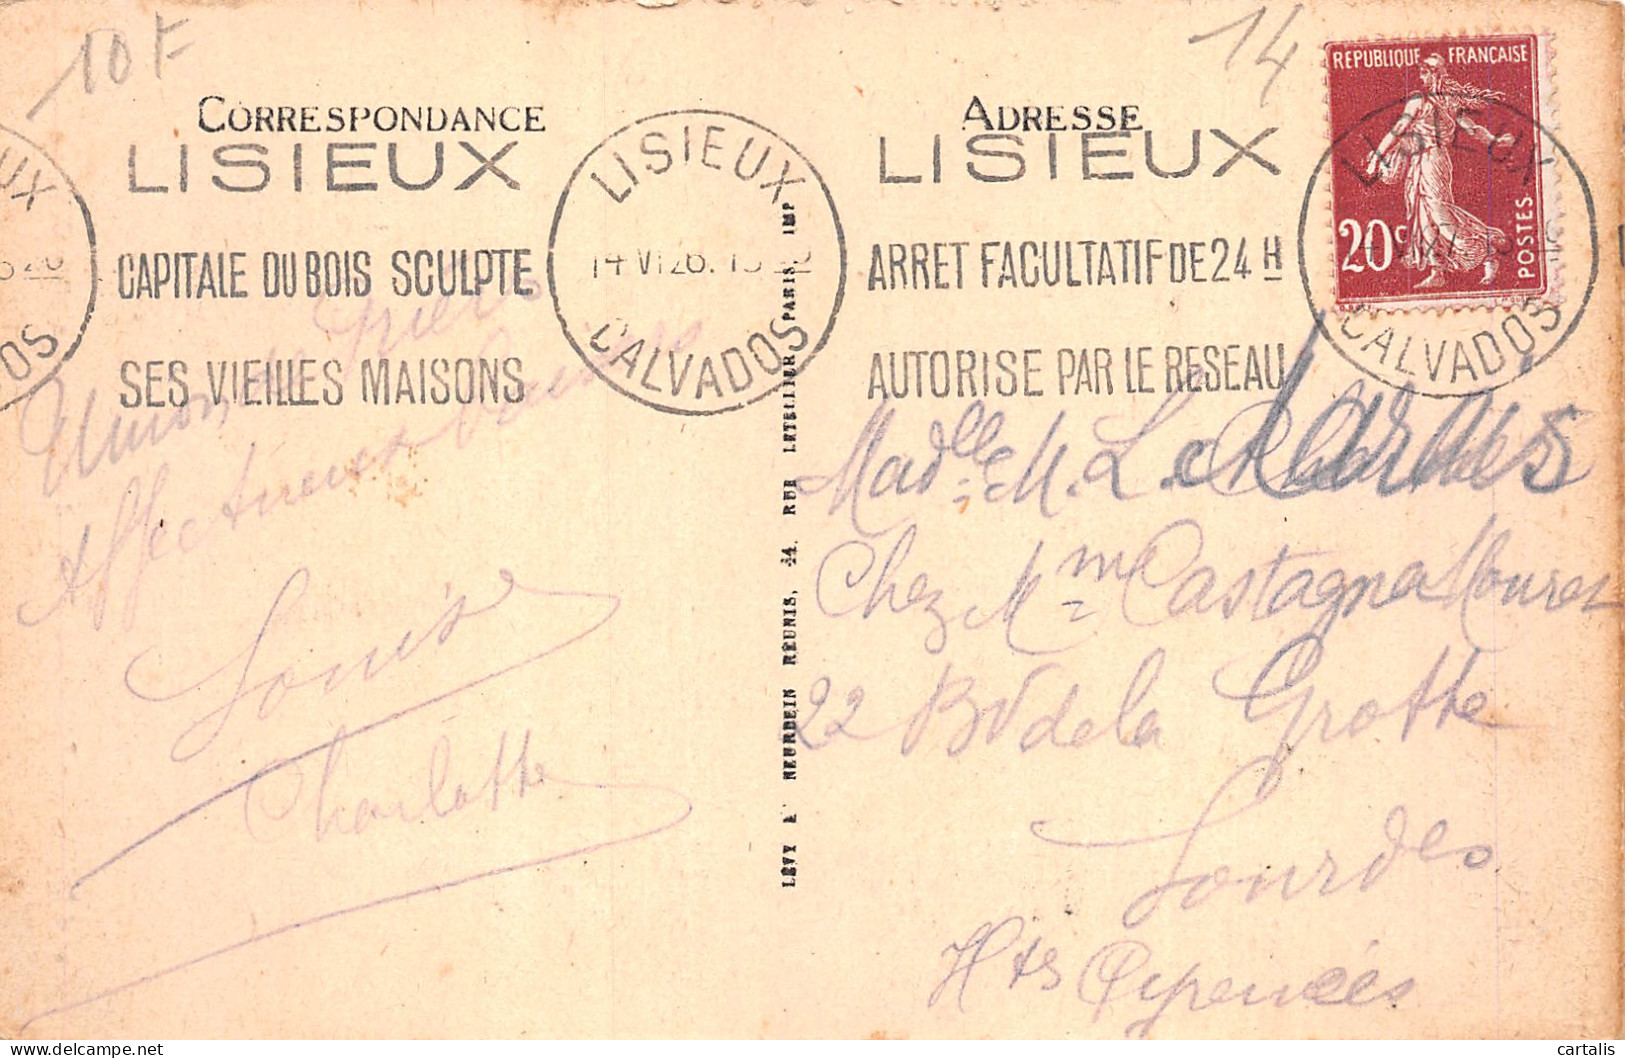 10 F
14
CORRESPONDANCE
ADRESSE
REPUBLIQUE FRANÇAISE
20c
POSTES
LISIEUX
CAPITALE DU BOIS SCULPTE
SES VIEILLES MAISONS
LISIEUX
14 VI 26.
CALVADOS
LISIEUX
ARRET FACULTATIF DE 24 H
AUTORISE PAR LE RESEAU
LISIEUX
CALVADOS
Union
Affectueux
Louise
Charlotte
LÉVY & NEURDEIN RÉUNIS, 44. RUE LETELLIER PARIS. IMP
Madelle M. L.
Chez Mme Castagné Mourez
22 Bd de la Grotte
Lourdes
Htes Pyrenées
cartalis